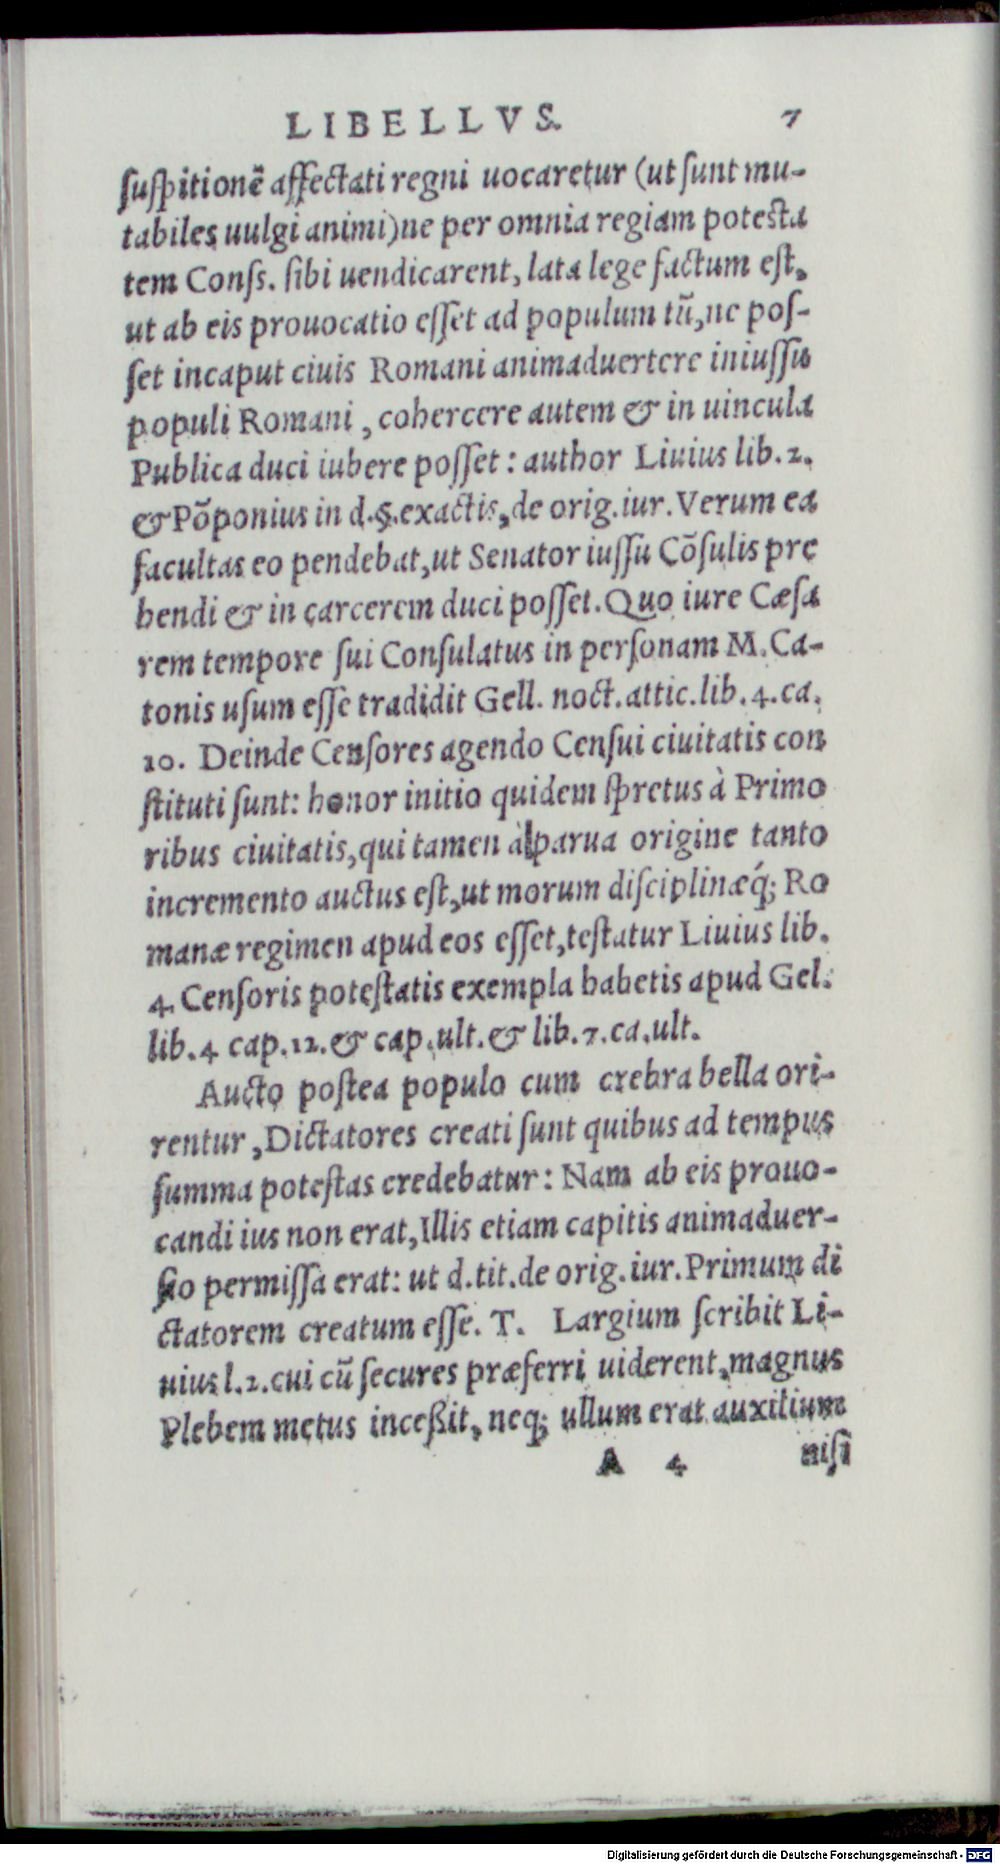 LIBELLVS. 7
ſuſpitionẽ affectati regni uocaretur (ut ſunt mu-
tabiles uulgi animi)ne per omnia regiam poteſta
tem Conſs. ſibi uendicarent, lata lege factum eſt,
ut ab eis prouocatio eſſet ad populum tũ,ne poſ-
ſet incaput ciuis Romani animaduertere iniuſſu
populi Romani , cohercere autem & in uincula
Publica duci iubere poſſet : author Liuius lib. 2.
& Põponius in d.§.exactis,de orig.iur.Verum ea
facultas eo pendebat,ut Senator iuſſu Cõſulis pre
hendi & in carcerem duci poſſet.Quo iure Cæſa
rem tempore ſui Conſulatus in perſonam M.Ca-
tonis uſum eſſe tradidit Gell. noct.attic.lib.4.ca.
10. Deinde Cenſores agendo Cenſui ciuitatis con
ſtituti ſunt: honor initio quidem ſpretus à Primo
ribus ciuitatis,qui tamen à parua origine tanto
incremento auctus eſt,ut morum diſciplinæq́; Ro
manæ regimen apud eos eſſet,teſtatur Liuius lib.
4. Cenſoris poteſtatis exempla habetis apud Gel.
lib.4 cap.12.& cap.ult.& lib.7.ca.ult.
Aucto poſtea populo cum crebra bella ori-
rentur ,Dictatores creati ſunt quibus ad tempus
ſumma poteſtas credebatur : Nam ab eis prouo-
candi ius non erat,Illis etiam capitis animaduer-
ſio permiſſa erat: ut d.tit.de orig.iur.Primum di
ctatorem creatum eſſe. T. Largium ſcribit Li-
uius l.2.cui cũ ſecures præferri uiderent,magnus
Plebem metus inceßit, neq; ullum erat auxilium
A 4 niſi
Digitalisierung gefördert durch die Deutsche Forschungsgemeinschaft - DFG